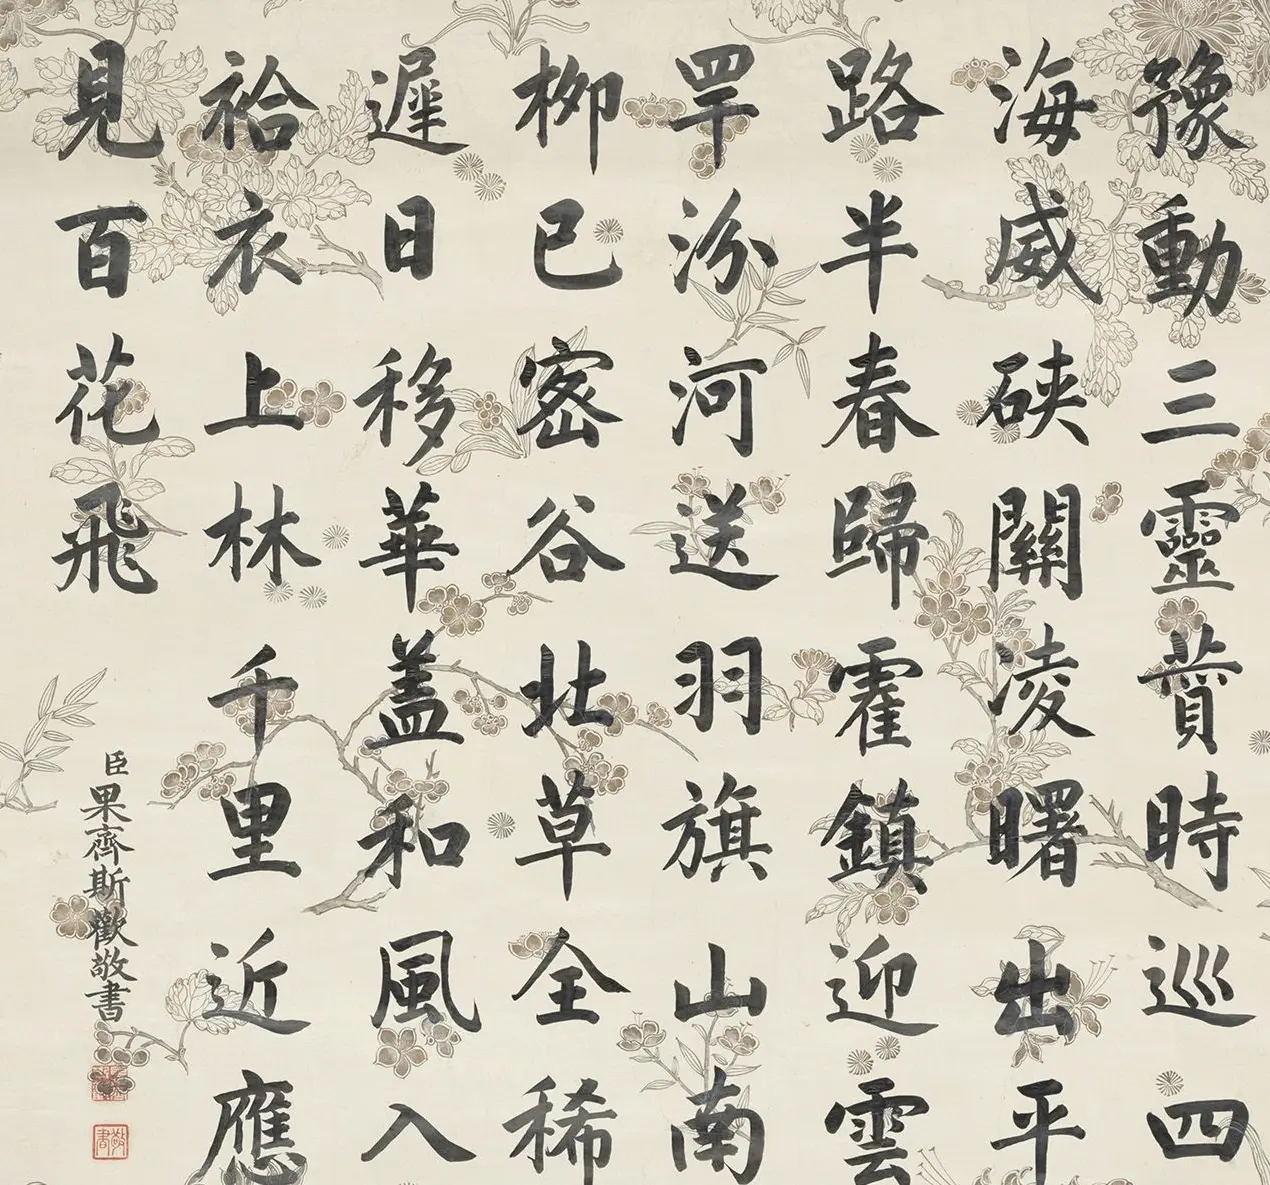 豫動三靈賛時巡四
海威硤關凌曙出平
路半春歸霍鎮迎雲
罕汾河送羽旗山南
柳已密谷北草全稀
遲日移華蓋和風入
袷衣上林千里近應
見百花飛
臣果齊斯歡敬書
敬書